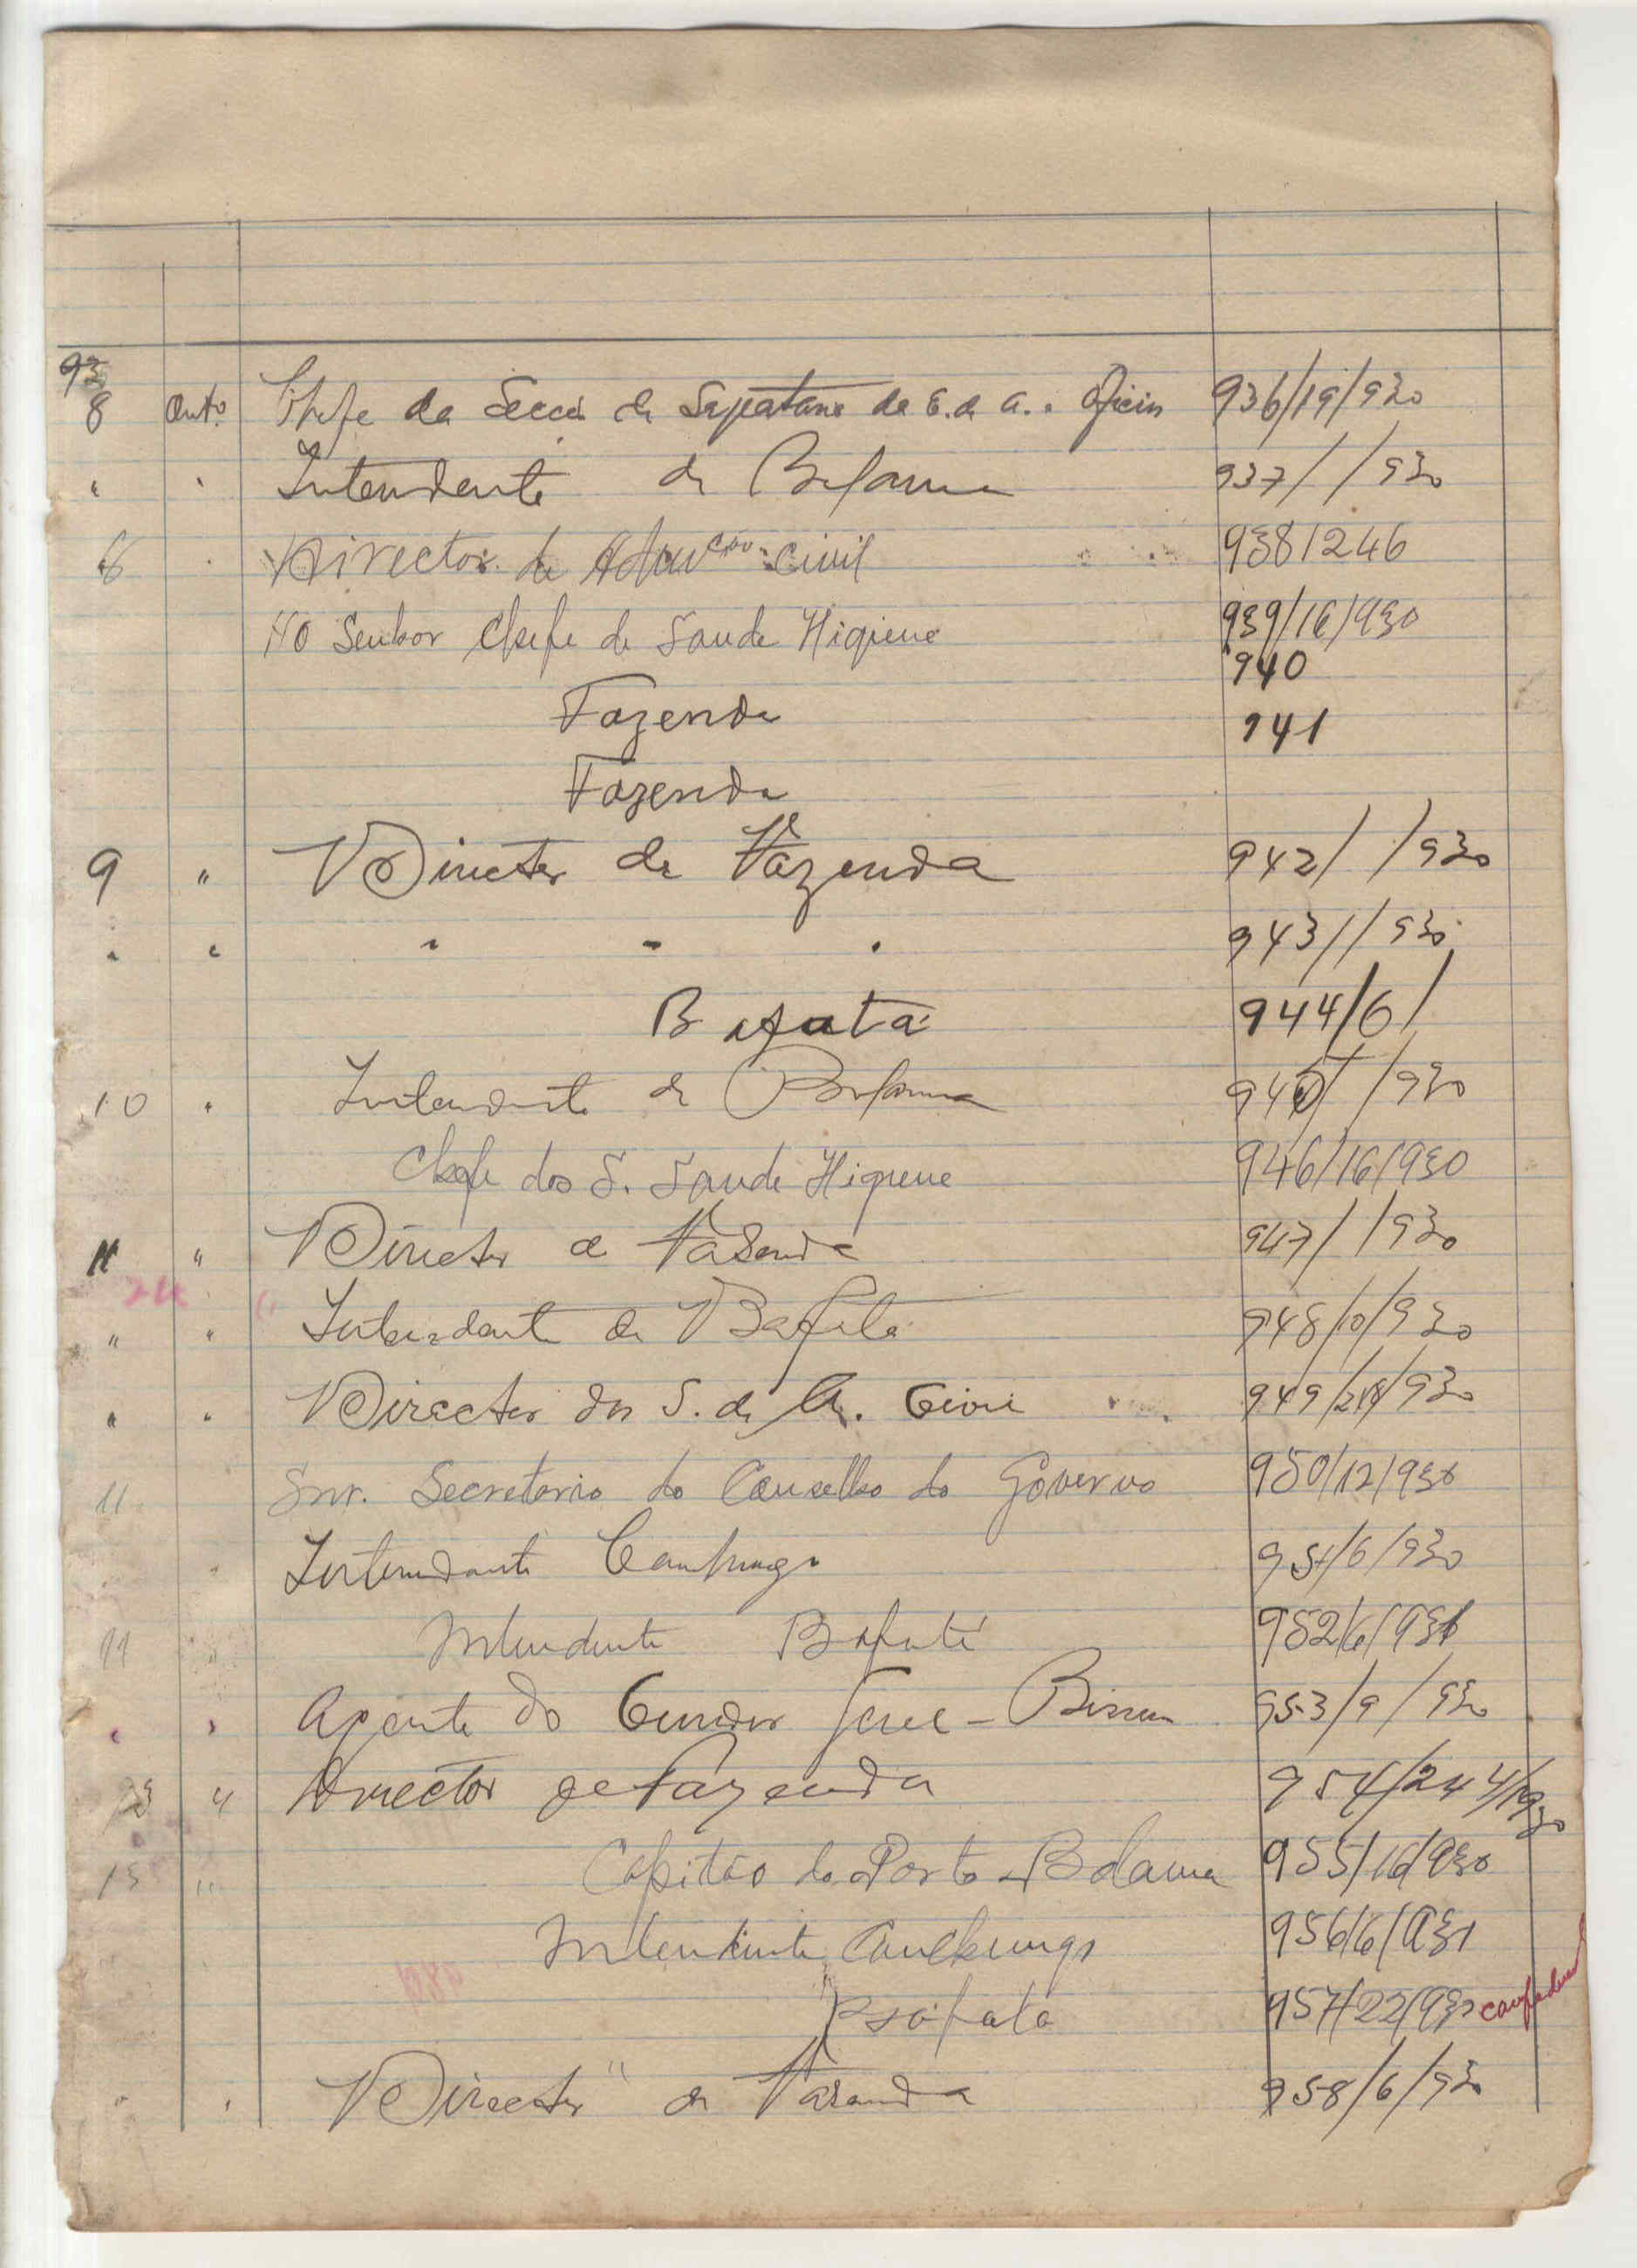 93
8 Outº Chefe da Secção de Sapataria da E. de A. e Oficios 936/19/930
" " Intendente de Bolama 937/ /930
8 " Director da Admcao Civil 938/246
Ao Senhor Chefe de Saude Higiene 939/16/930
940
Fazenda
941
Fazenda
9 " Director de Fazenda 942/ /930
" " " " " 943/ /930
Bafatá 944/6/
10 " Intendente de Bolama 945/ /930
Chefe dos S. Saude Higiene 946/16/930
11 " Director de Fazenda 947/ /930
" " Intendente de Bafatá 948/10/930
" " Director dos S. de A. Civil 949/248/930
11 Snr. Secretario do Conselho do Governo 950/12/930
" Intendente Canchungo 951/6/930
11 " Intendente Bafatá 952/6/930
" " Agente do 953/9/930
13 " Director de Fazenda 954/244/1930
15 " Capitão do Porto Bolama 955/16/930
Intendente Canchungo 956/6/931
" Bafatá 957/22/930
" " Director de Fazenda 958/6/930